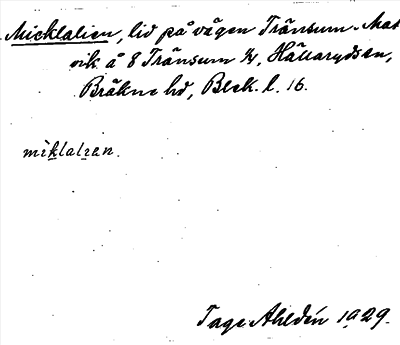 Micklalien, lid på vägen Tränsum - Mat
vik å 8 Tränsum 1/4, Hällaryds sn,
Bräkne hd, Blek. l. 16.
mìklalıen.
Tage Ahldén 1929.